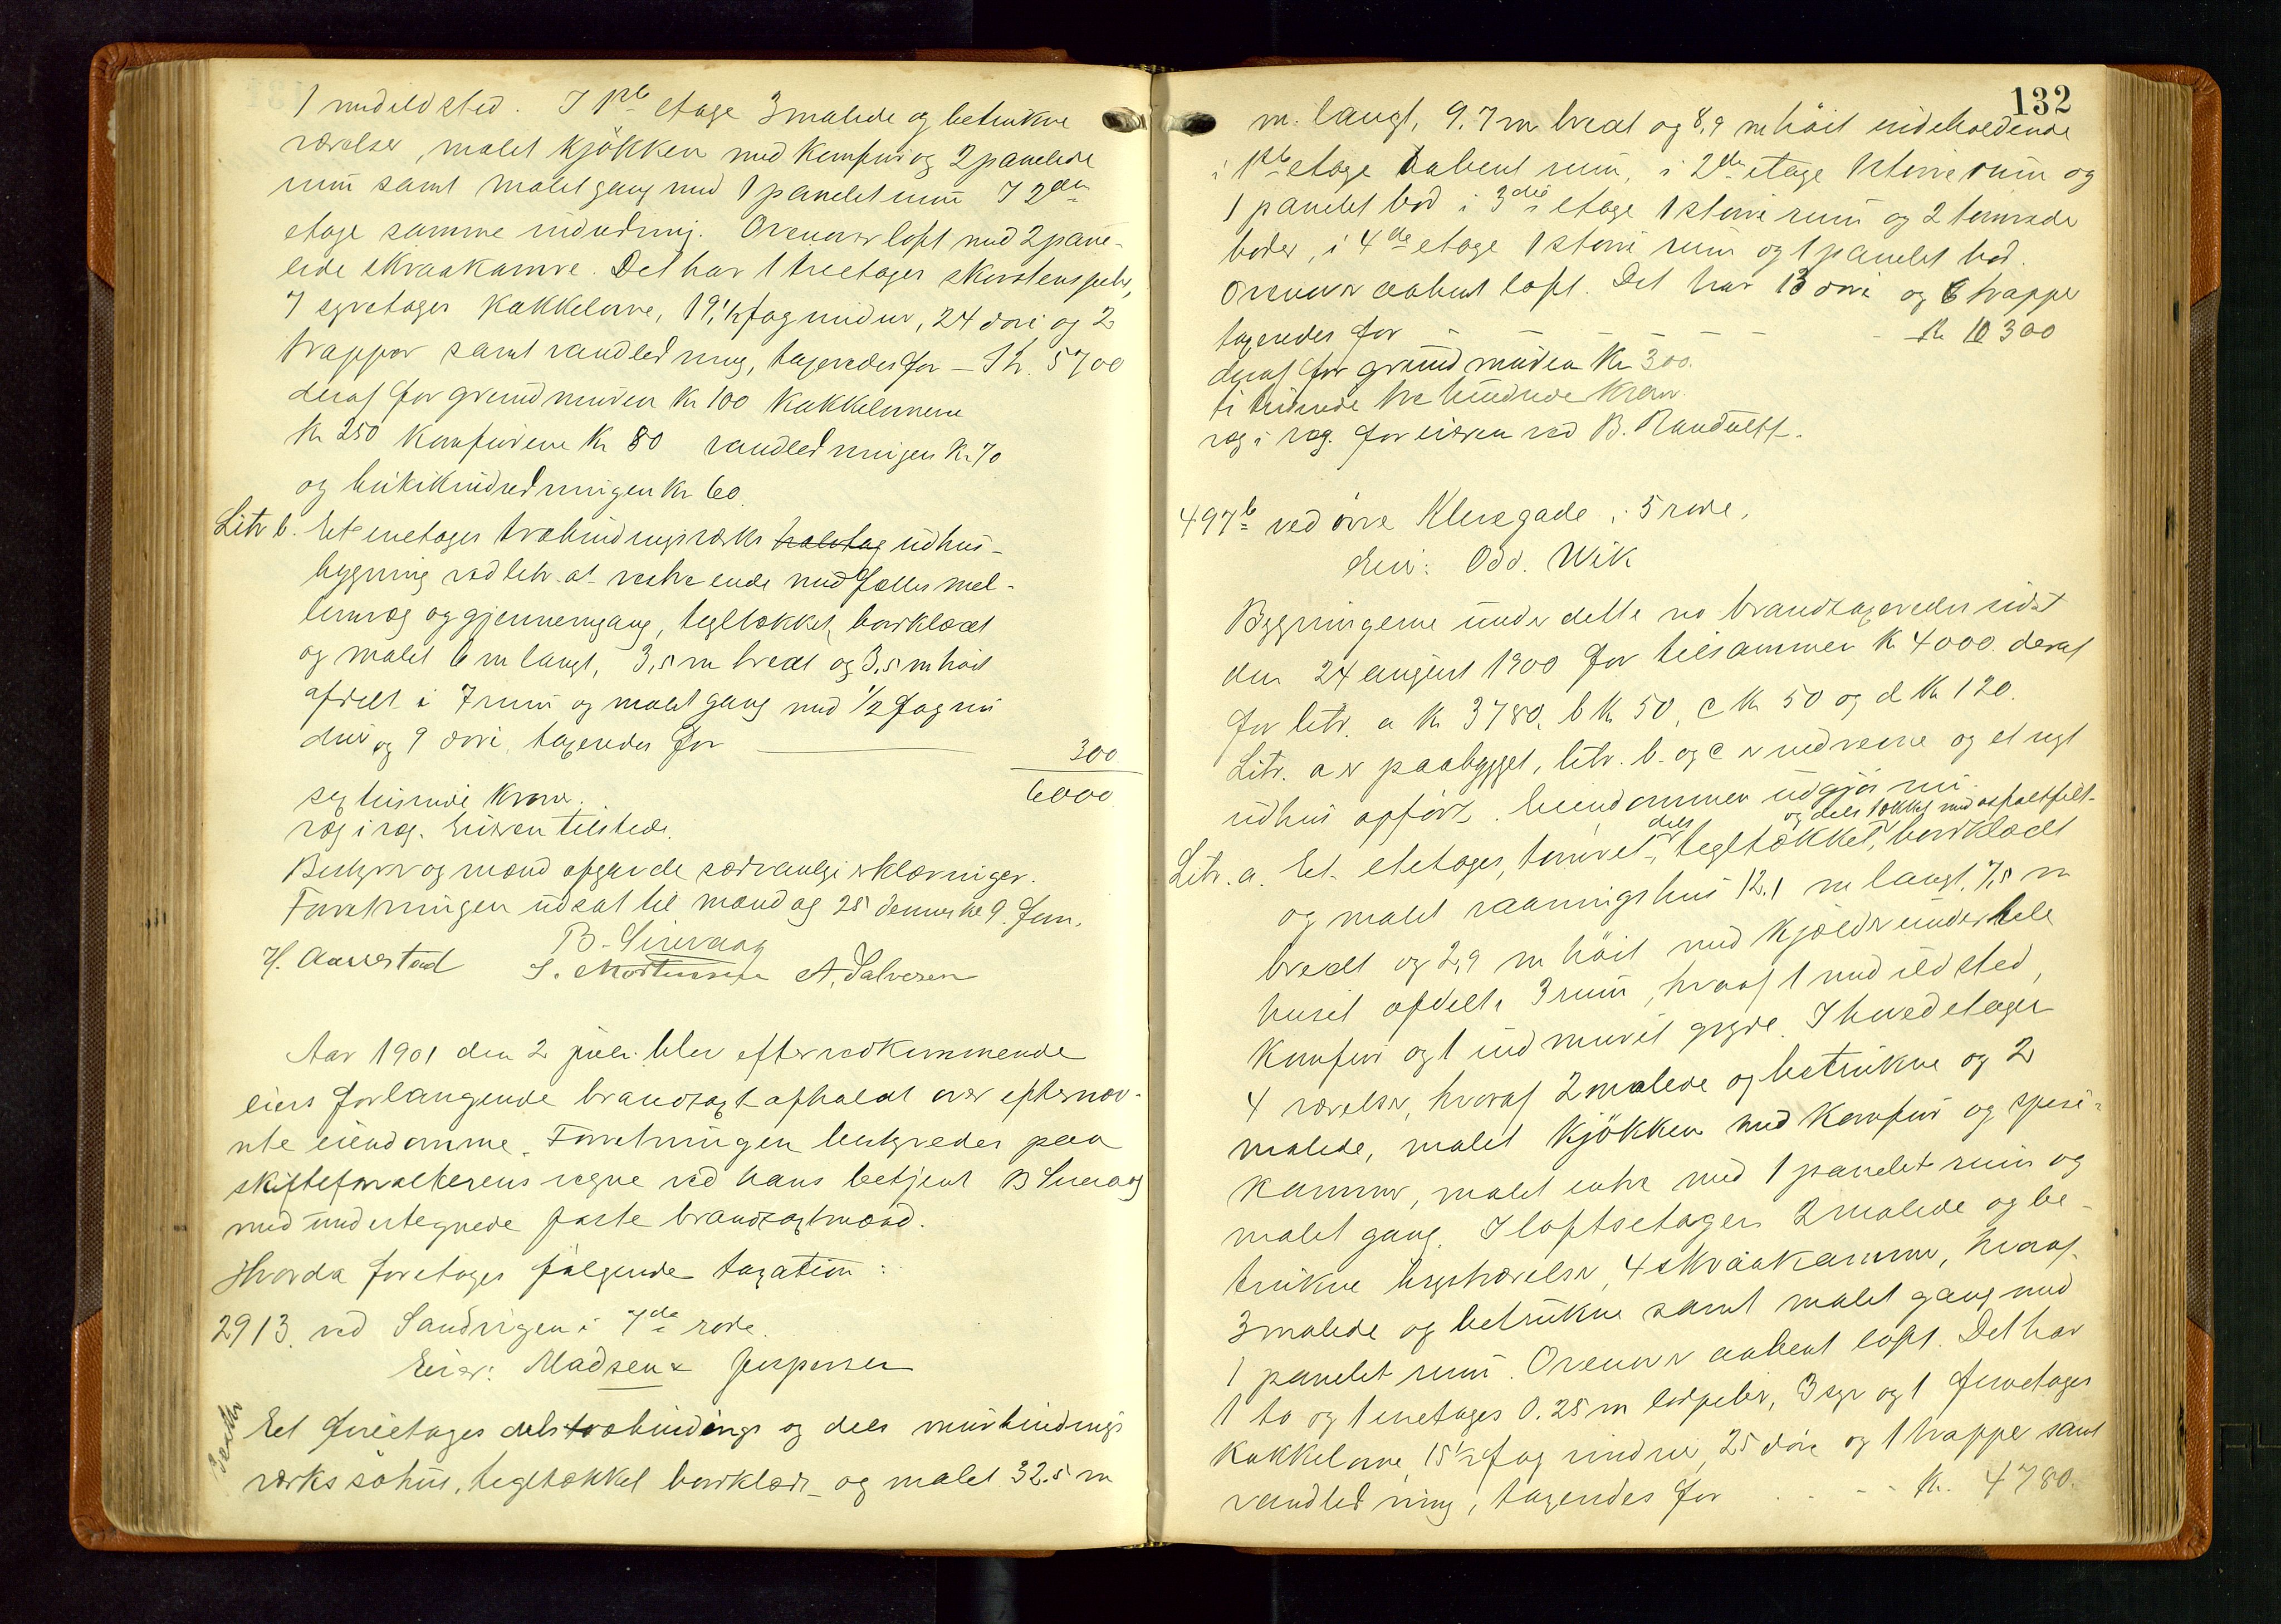 1 med ildsted. I 1ste etage 3 malede og betrukne
værelser, malet kjökken med komfur og 2 panelede
rum samt malet gang med 1 panelet rum I 2den
etage samme indredning. Ovenover loft med 2 pane-
lede skraakamre. Det har 1 treetages skorstenspibe,
7 syvetages kakkelovne, 19 1/2 fag vinduer, 24 döre og 2
trapper samt vandledning, taxeredes for - Kr. 5700
deraf for grundmuren Kr 100 kakkelovnene
Kr 250 komfurene Kr 80 vandledningen Kr 70
og butikindredningen Kr 60.
Litr b. Et enetages træbindingsværks halvtag udhus-
bygning ved litr. a's vestre ende med fælles mel-
lemvæg og gjennemgang, tegltækket, bordklædt
og malet 6 m langt, 3,5 m bredt og 3,5 m höit
afdelt i 7 rum og malet gang med 1/2 fag vin
duer og 9 döre, taxeredes for 300
6000
sextusinde Kroner.
væg i væg. Eieren tilstede.
Bestyrer og mænd afgav de sædvanlige erklæringer.
Forretningen udsat til mandag 25 dennes kl 9. Form.
B. Sirevaag
H. Aarrestad S. Mortensen A. Salvesen
Aar 1901 den 2 juli blev efter vedkommende
eiers forlangende brandtaxt afholdt over efternæv-
nte eiendomme. Forretningen bestyredes paa
skifteforvalterens vegne ved hans betjent B Sirevaag
med undertegnede faste brandtaxtmænd.
Hvorda foretages fölgende taxation:
2913. ved Sandvigen i 7de rode.
Eier: Madsen & Jespersen
Et fireetages dels træbindings og dels murbindings
værks söhus, tegltækket bordklædt og malet 32.5 m
132
m. langt, 9.7 m bredt og 8,9 m höit indeholdende
i 1ste etage aabent rum, i 2den etage 1 större rum og
1 panelet bod i 3die etage 1 större rum og 2 tömrede
boder, i 4de etage 1 större rum og 1 panelet bod.
Ovenover aabent loft. Det har 13 döre og 6 trapper
taxeredes for - - - - - - - Kr 10300
deraf for grundmuren Kr 300.
ti tusinde tre hundrede Kroner.
væg i væg. for eieren ved B. Randulff.
497b ved övre Klevegade i 5 rode.
Eier: Odd. Wik
Bygningerne under dette no brandtaxeredes sidst
den 24 august 1900 for tilsammen Kr 4000. deraf
for litr. a Kr 3780, b Kr 50, c Kr 50 og d Kr 120.
Litr. a er paabygget, litr. b. og c er nedrevne og et nyt
udhus opfört. Eiendommen udgjör nu.
dels og dels tækket med asfaltfilt-
Litr. a. Et etetages, tömret, tegltækket, bordklædt
og malet vaaningshus 12,1 m langt, 7,5 m
bredt og 2,9 m höit med kjælder under hele
huset afdelt i 3 rum, hvoraf 1 med ildsted,
komfur og 1 indmuret gryde. I hovedetagen
4 værelser, hvoraf 2 malede og betrukne og 2
malede, malet kjökken med komfur og spise-
kammer, malet entre med 1 panelet rum og
malet gang. I loftsetagen 2 malede og be-
trukne kvistværelser, 4 skraakammer, hvoraf
3 malede og betrukne samt malet gang med
1 panelet rum. Ovenover aabent loft. Det har
1 to og 1 enetages 0.25 m lodpiber, 3 syv og 1 firetages
kakkelovne, 15 1/2 fag vinduer, 25 döre og 1 trappe samt
vandledning, taxeredes for . - - - Kr. 4780.